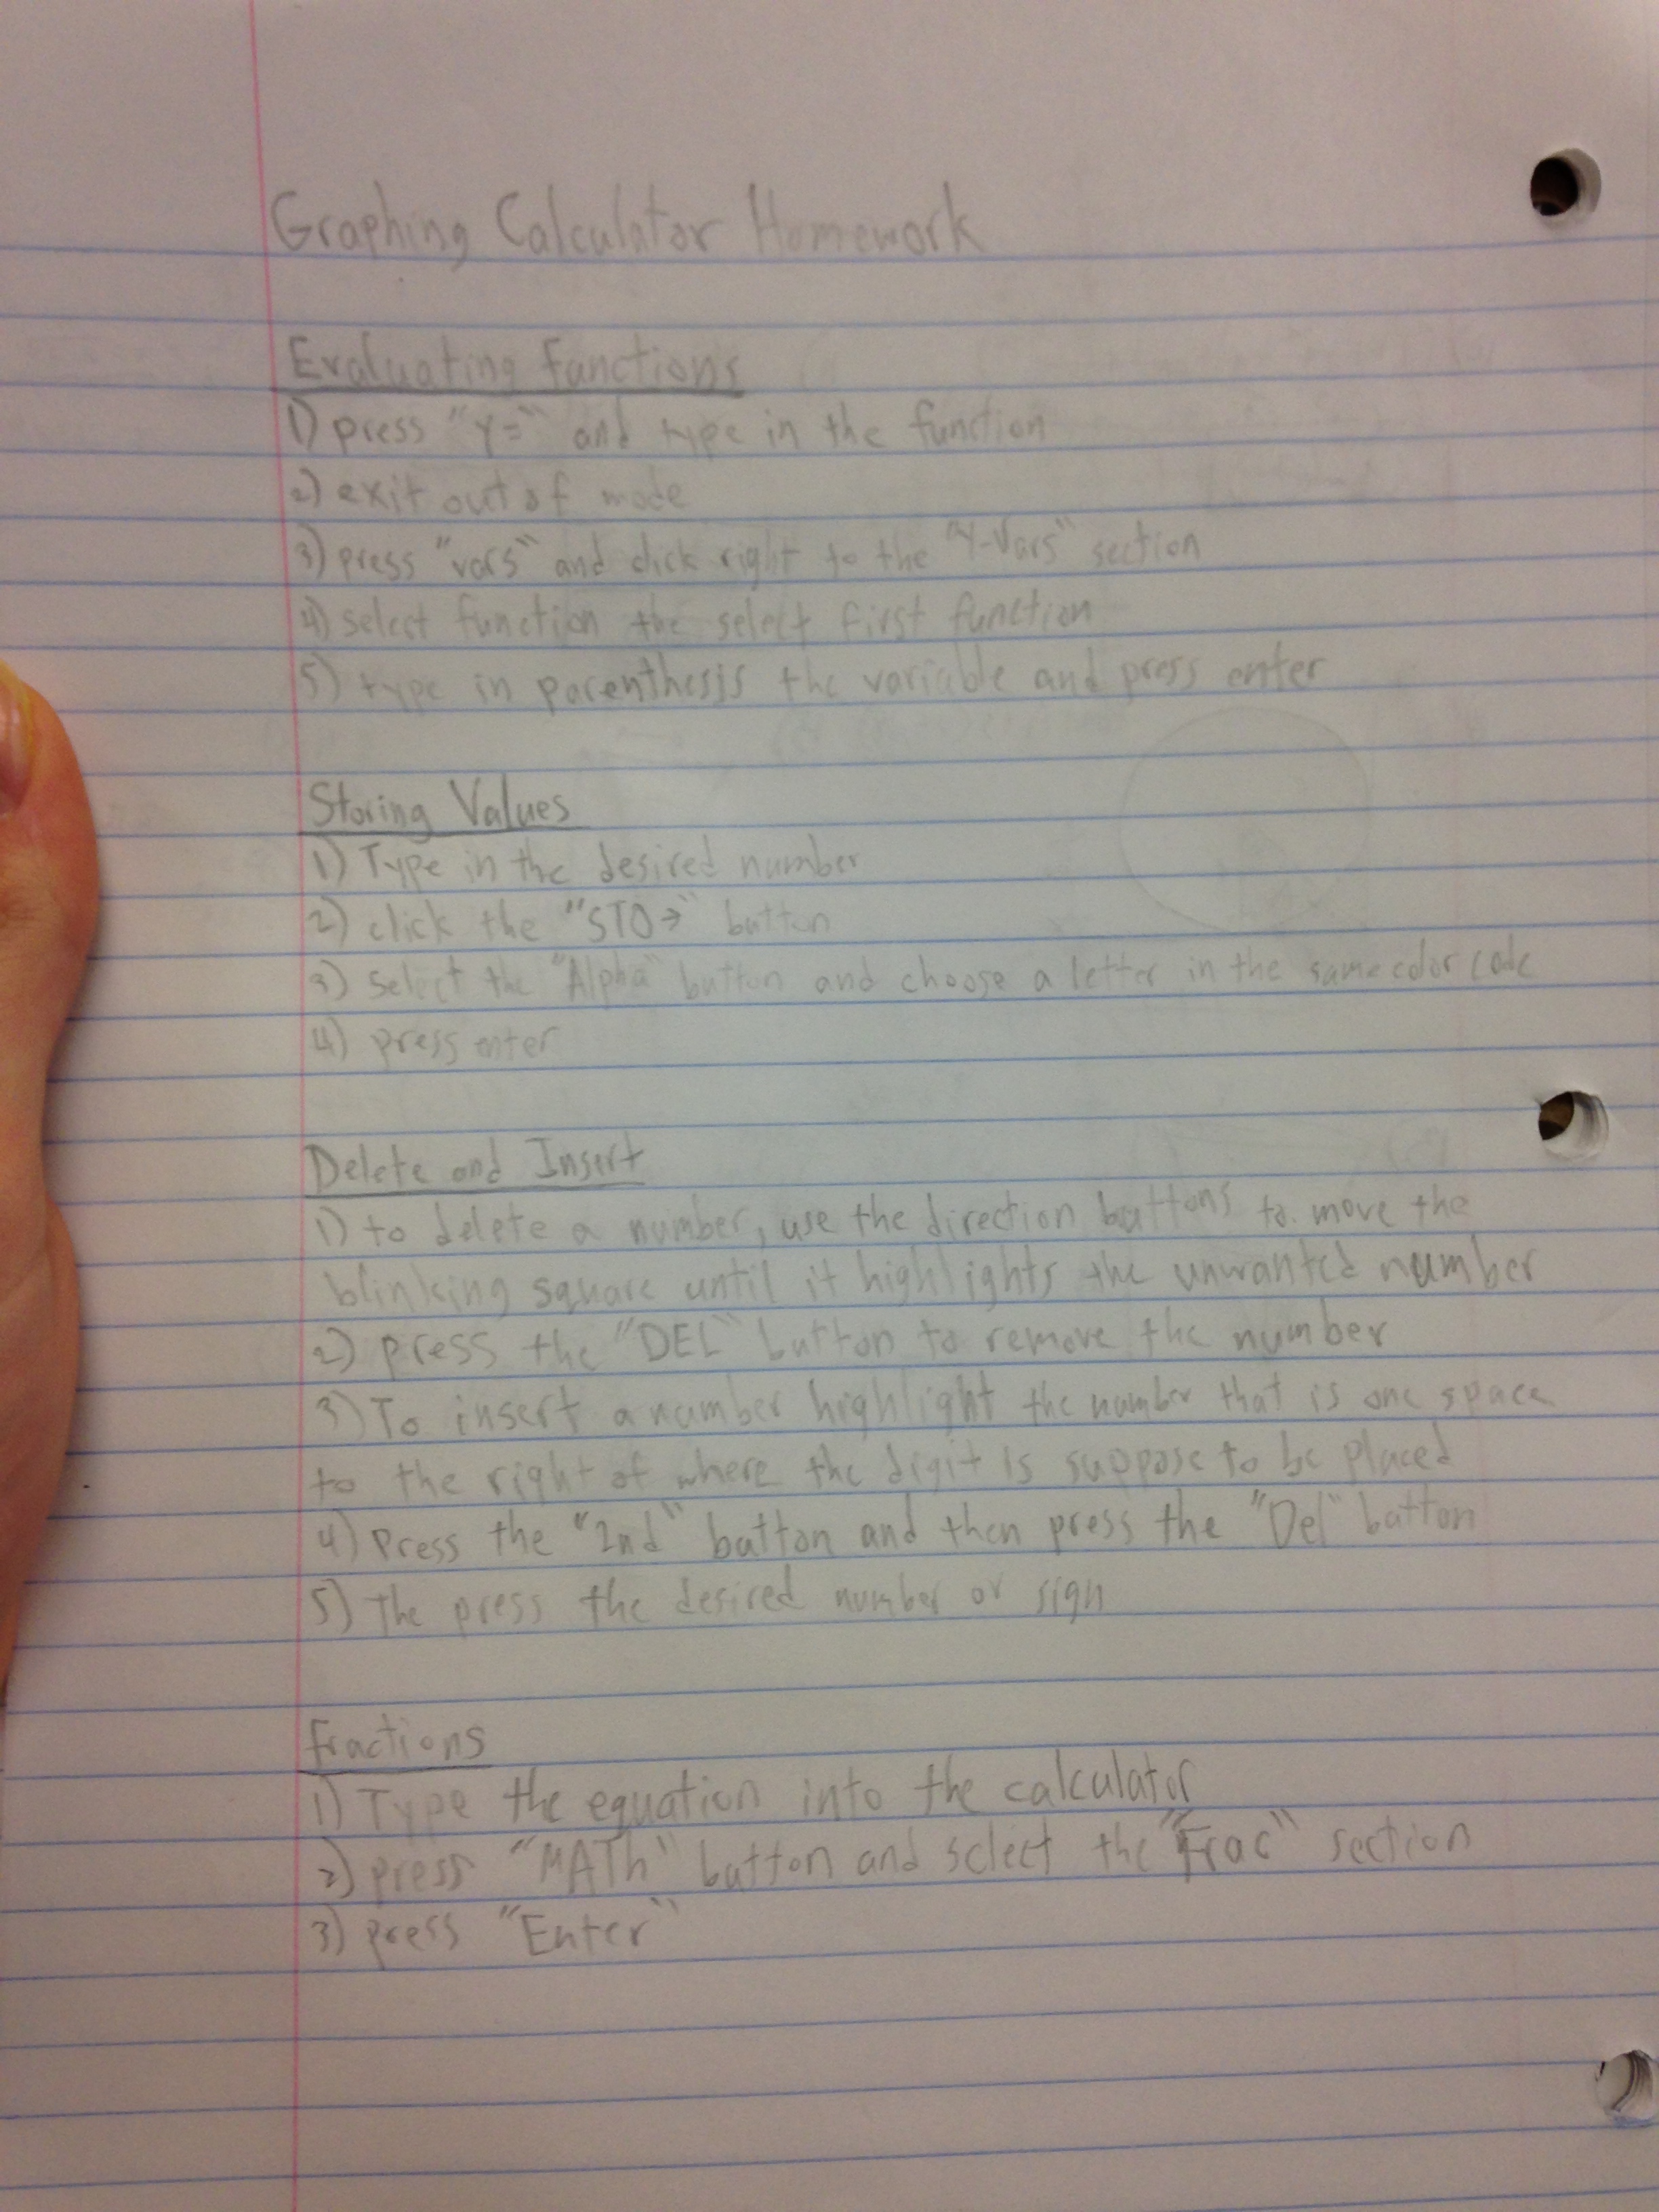 Graphing Calculator Homework
Evaluating Functions
1) press "Y=" and type in the function
2) exit out of mode
3) press "vars" and click right to the "Y-Vars" section
4) select function the select first function
5) type in parenthesis the variable and press enter
Storing Values
1) Type in the desired number
2) click the "STO→" button
3) select the "Alpha" button and choose a letter in the same color code
4) press enter
Delete and Insert
1) to delete a number, use the direction buttons to move the
blinking square until it highlights the unwanted number
2) press the "DEL" button to remove the number
3) To insert a number highlight the number that is one space
to the right of where the digit is suppose to be placed
4) Press the "2nd" button and then press the "Del" button
5) the press the desired number or sign
fractions
1) Type the equation into the calculator
2) press "MATh" button and select the "Frac" section
3) press "Enter"